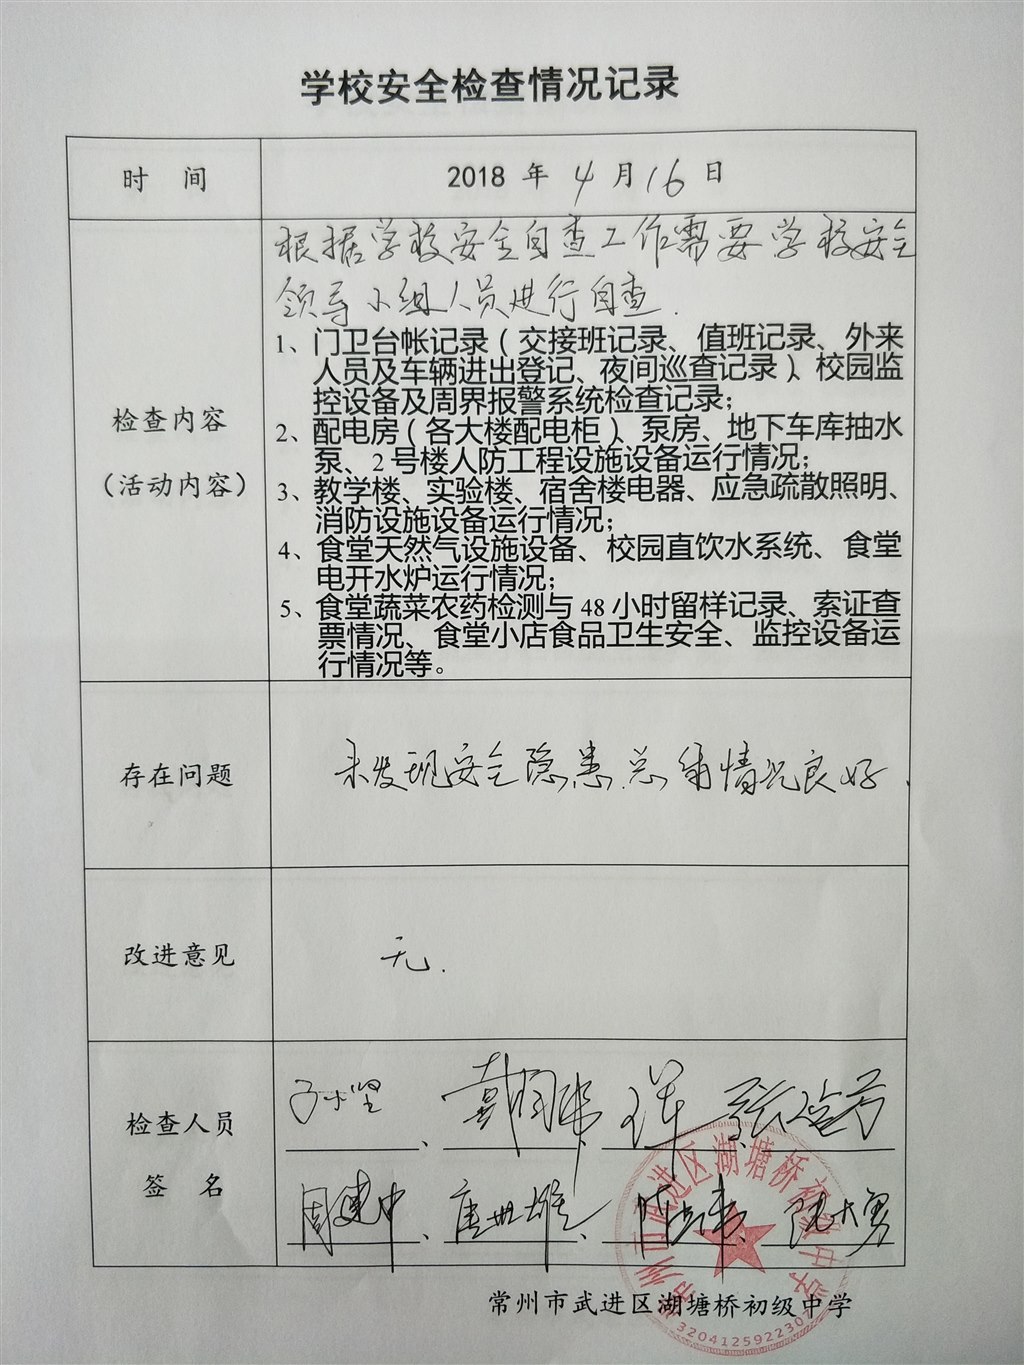 学校安全检查情况记录
时 间
2018 年 4 月 16 日
根据学校安全自查工作需要学校安全
领导小组人员进行自查.
检查内容
（活动内容）
1、门卫台帐记录（交接班记录、值班记录、外来
人员及车辆进出登记、夜间巡查记录）、校园监
控设备及周界报警系统检查记录；
2、配电房（各大楼配电柜）、泵房、地下车库抽水
泵、2 号楼人防工程设施设备运行情况；
3、教学楼、实验楼、宿舍楼电器、应急疏散照明、
消防设施设备运行情况；
4、食堂天然气设施设备、校园直饮水系统、食堂
电开水炉运行情况；
5、食堂蔬菜农药检测与 48 小时留样记录、索证查
票情况、食堂小店食品卫生安全、监控设备运
行情况等。
存在问题
未发现安全隐患.总体情况良好.
改进意见
无.
检查人员
签 名
周建中、
常州市武进区湖塘桥初级中学
常州市武进区湖塘桥初级中学